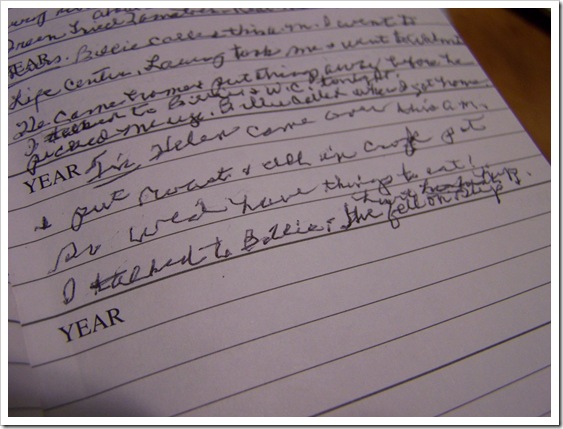 Green Fried Tomatoes.
YEARS. Billie called this a.m. I went to
Life Center. Laving took me & went to
He came home & put things away before he
I talked to Billie & W.C. tonight.
picked me up. Billie called when I got home.
YEAR Fri. Helen came over this a.m.
& put roast & all in crock pot
So we'd have things to eat!
I talked to Billie, She fell on step
hurt hip.
YEAR